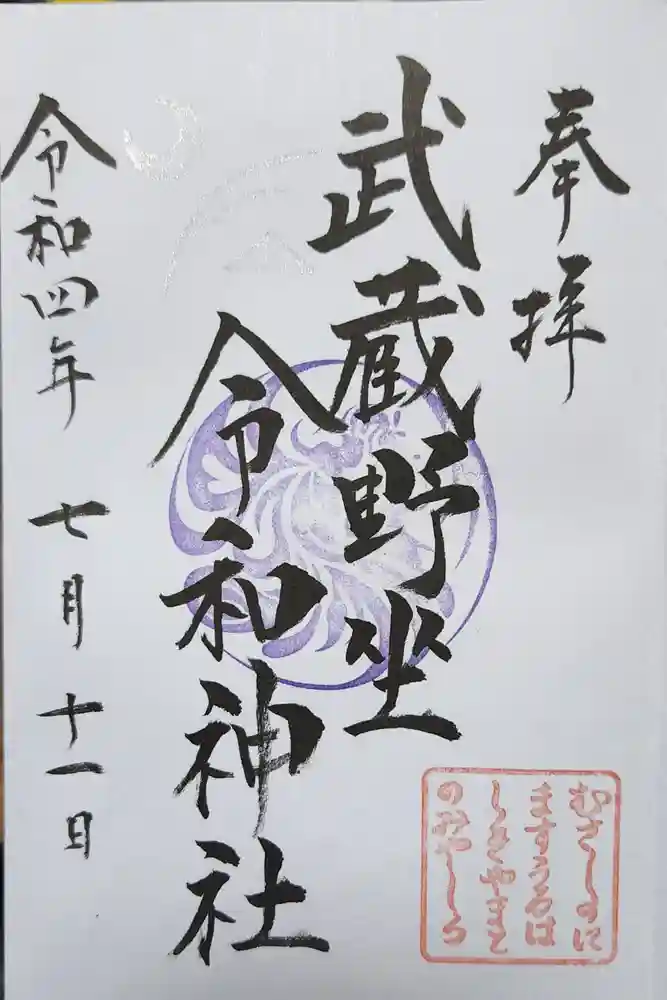 奉拝
武蔵野坐
令和神社
令和四年 七月十一日
むさしのに
ますうるは
しきやまと
のみやしろ